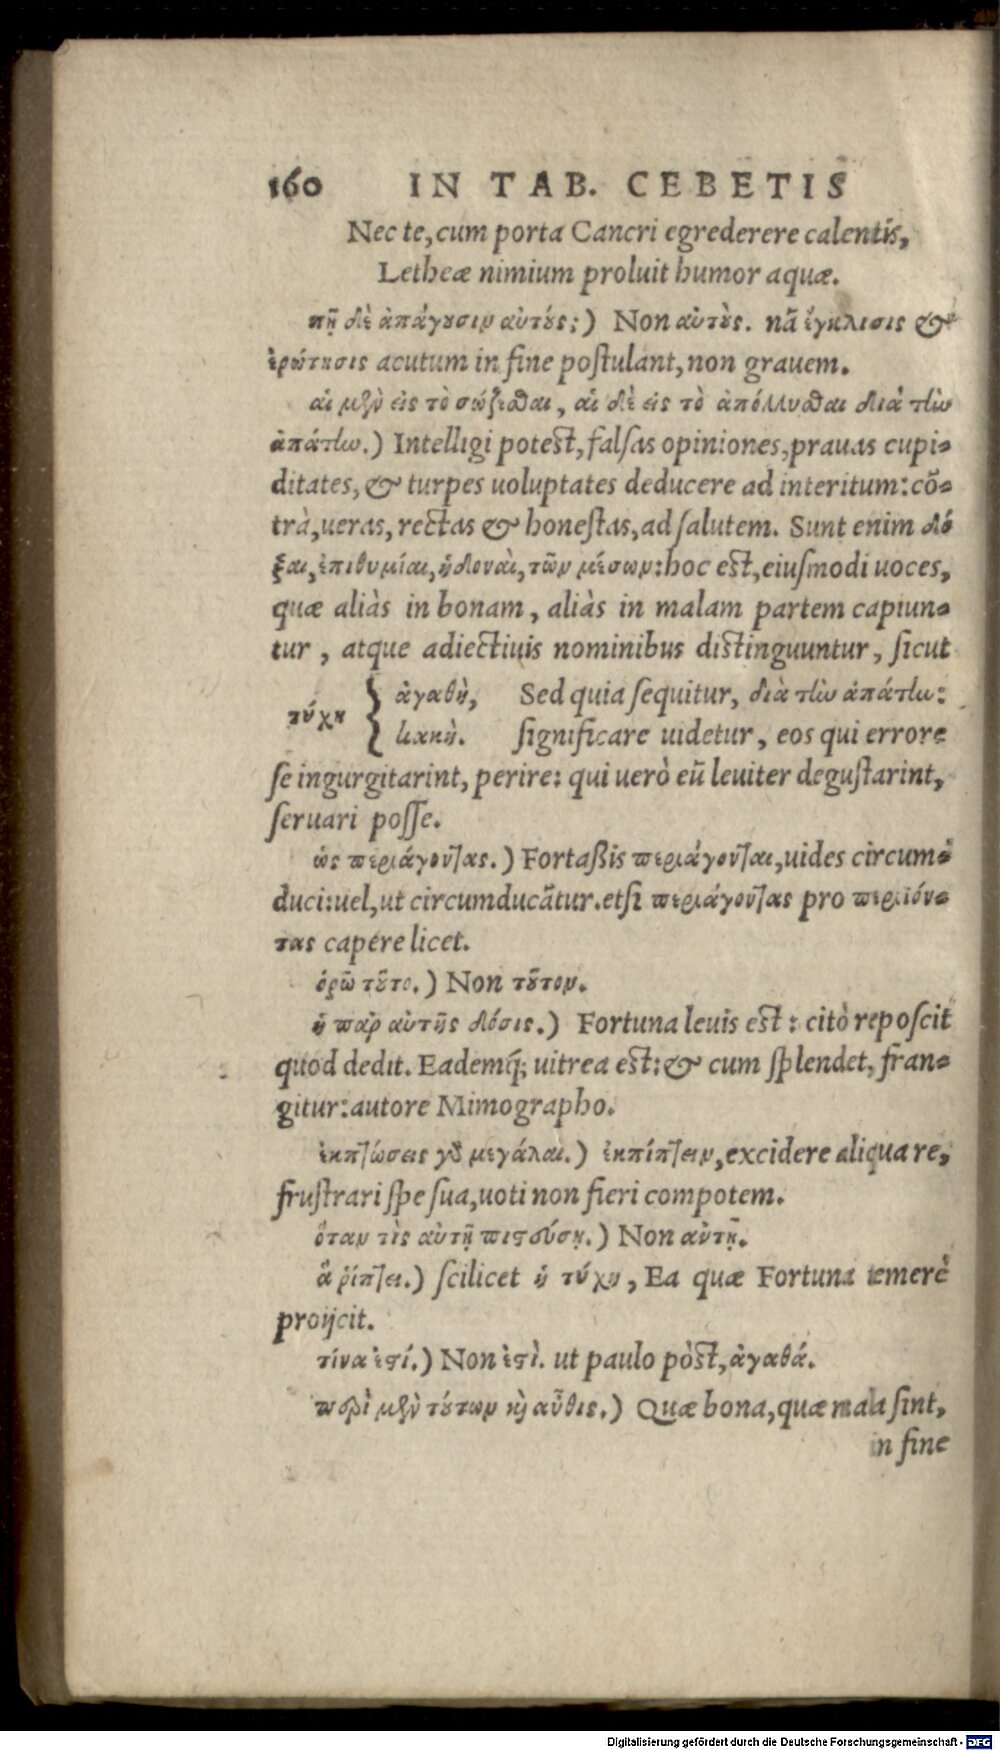 160 IN TAB. CEBETIS
Nec te, cum porta Cancri egrederere calentis,
Letheæ nimium proluit humor aquæ.
πῇ δὲ ἀπάγουσιν αὐτούς;) Non αὐτοὺς. nã ἔγκλισις &
ἐρώτησις acutum in fine postulant, non grauem.
αἱ μὲν εἰς τὸ σώζεσθαι, αἱ δὲ εἰς τὸ ἀπόλλυσθαι διὰ τὴν
ἀπάτην.) Intelligi potest, falsas opiniones, prauas cupi-
ditates, & turpes uoluptates deducere ad interitum: cõ-
trà, ueras, rectas & honestas, ad salutem. Sunt enim δό
ξαι, ἐπιθυμίαι, ἡδοναὶ, τῶν μέσων: hoc est, eiusmodi uoces,
quæ aliàs in bonam, aliàs in malam partem capiun-
tur, atque adiectiuis nominibus distinguuntur, sicut
τύχη { ἀγαθὴ, Sed quia sequitur, διὰ τὴν ἀπάτην:
κακὴ. significare uidetur, eos qui errore
se ingurgitarint, perire: qui uerò eũ leuiter degustarint,
seruari posse.
ὡς περιάγονται.) Fortaßis περιάγονται, uides circum-
duci: uel, ut circumducãtur. etsi περιάγοντας pro περιιόν-
τας capere licet.
ὁρῶ τοῦτο.) Non τοῦτον.
ἡ παρ αὐτῆς δόσις.) Fortuna leuis est: citò reposcit
quod dedit. Eademq́; uitrea est: & cum splendet, fran-
gitur: autore Mimographo.
ἐκπτώσεις γὰρ μεγάλαι.) ἐκπίπτειν, excidere aliqua re,
frustrari spe sua, uoti non fieri compotem.
ὅταν τὶς αὐτῇ πιστεύσῃ.) Non αὐτῇ.
ἃ ῥίπτει.) scilicet ἡ τύχη, Ea quæ Fortuna temerè
proijcit.
τίνα ἐστί.) Non ἐστὶ. ut paulo pòst, ἀγαθά.
περὶ μὲν τούτων καὶ αὖθις.) Quæ bona, quæ mala sint,
in fine
Digitalisierung gefördert durch die Deutsche Forschungsgemeinschaft - DFG